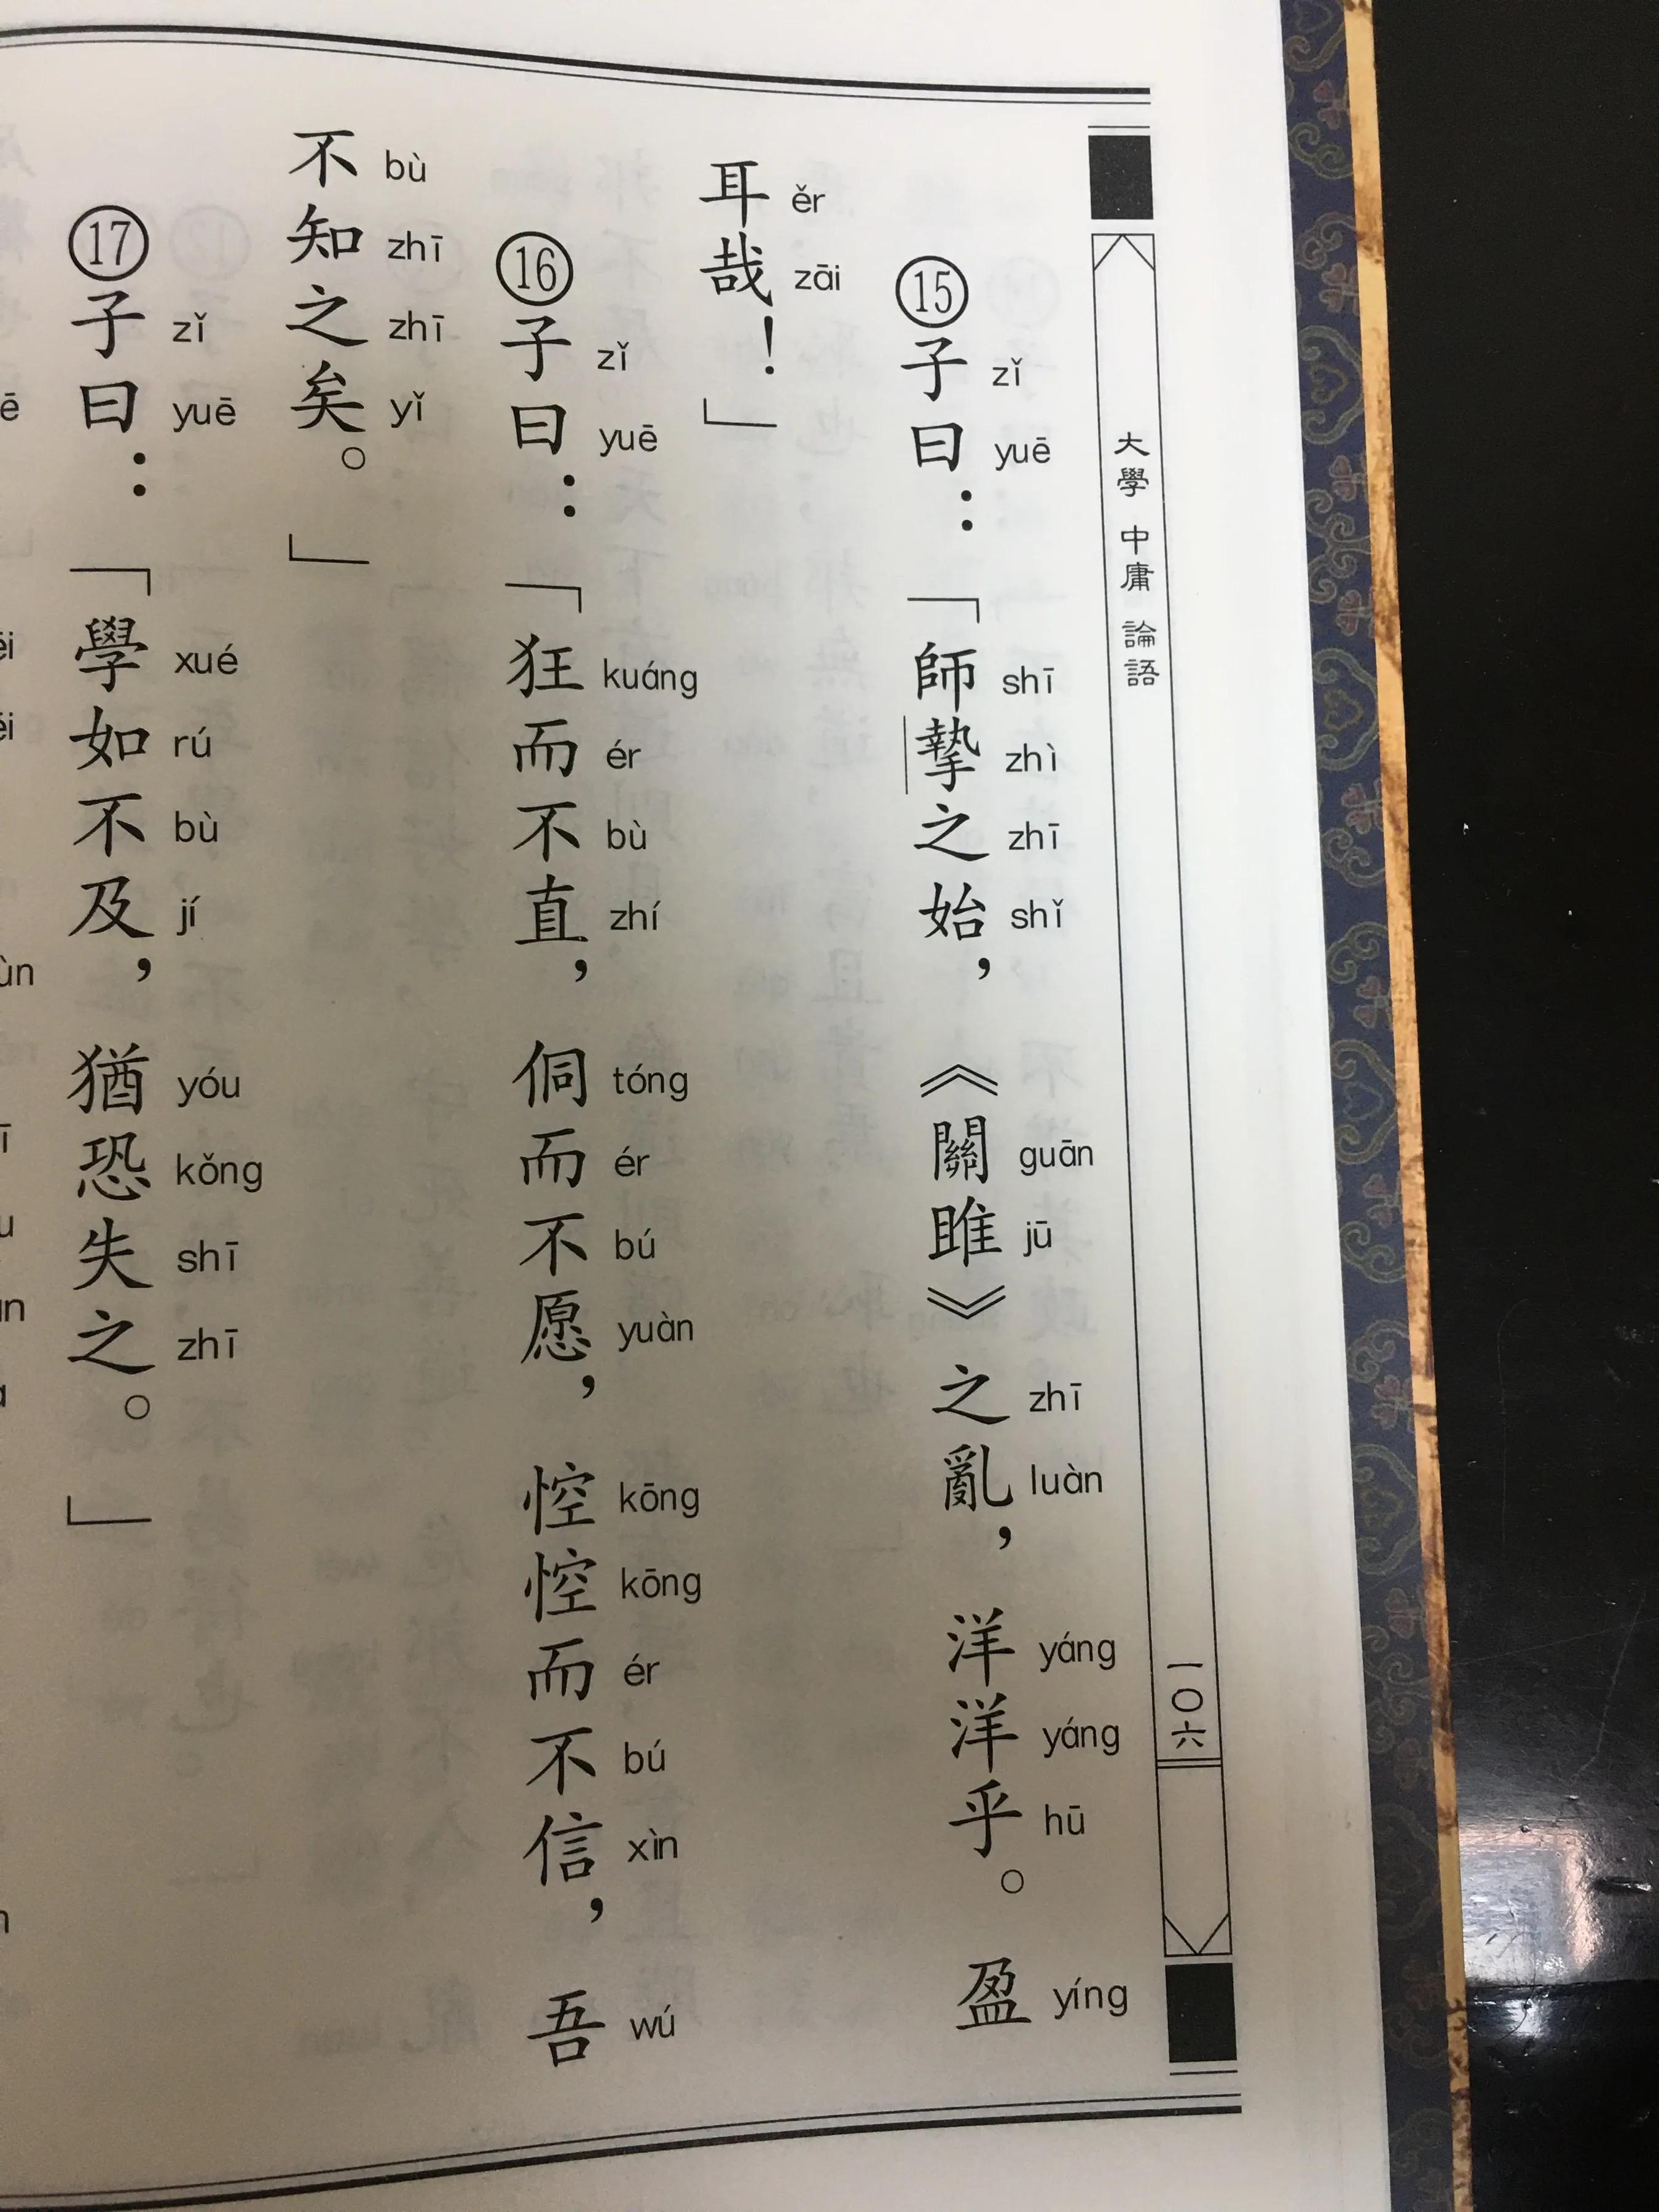 大學 中庸 論語
一〇六
⑮子曰：「師摯之始，《關雎》之亂，洋洋乎。盈
zǐ yuē shī zhì zhī shǐ guān jū zhī luàn yáng yáng hū yíng
耳哉！」
ěr zāi
⑯子曰：「狂而不直，侗而不愿，悾悾而不信，吾
zǐ yuē kuáng ér bù zhí tóng ér bú yuàn kōng kōng ér bú xìn wú
不知之矣。」
bù zhī zhī yǐ
⑰子曰：「學如不及，猶恐失之。」
zǐ yuē xué rú bù jí yóu kǒng shī zhī